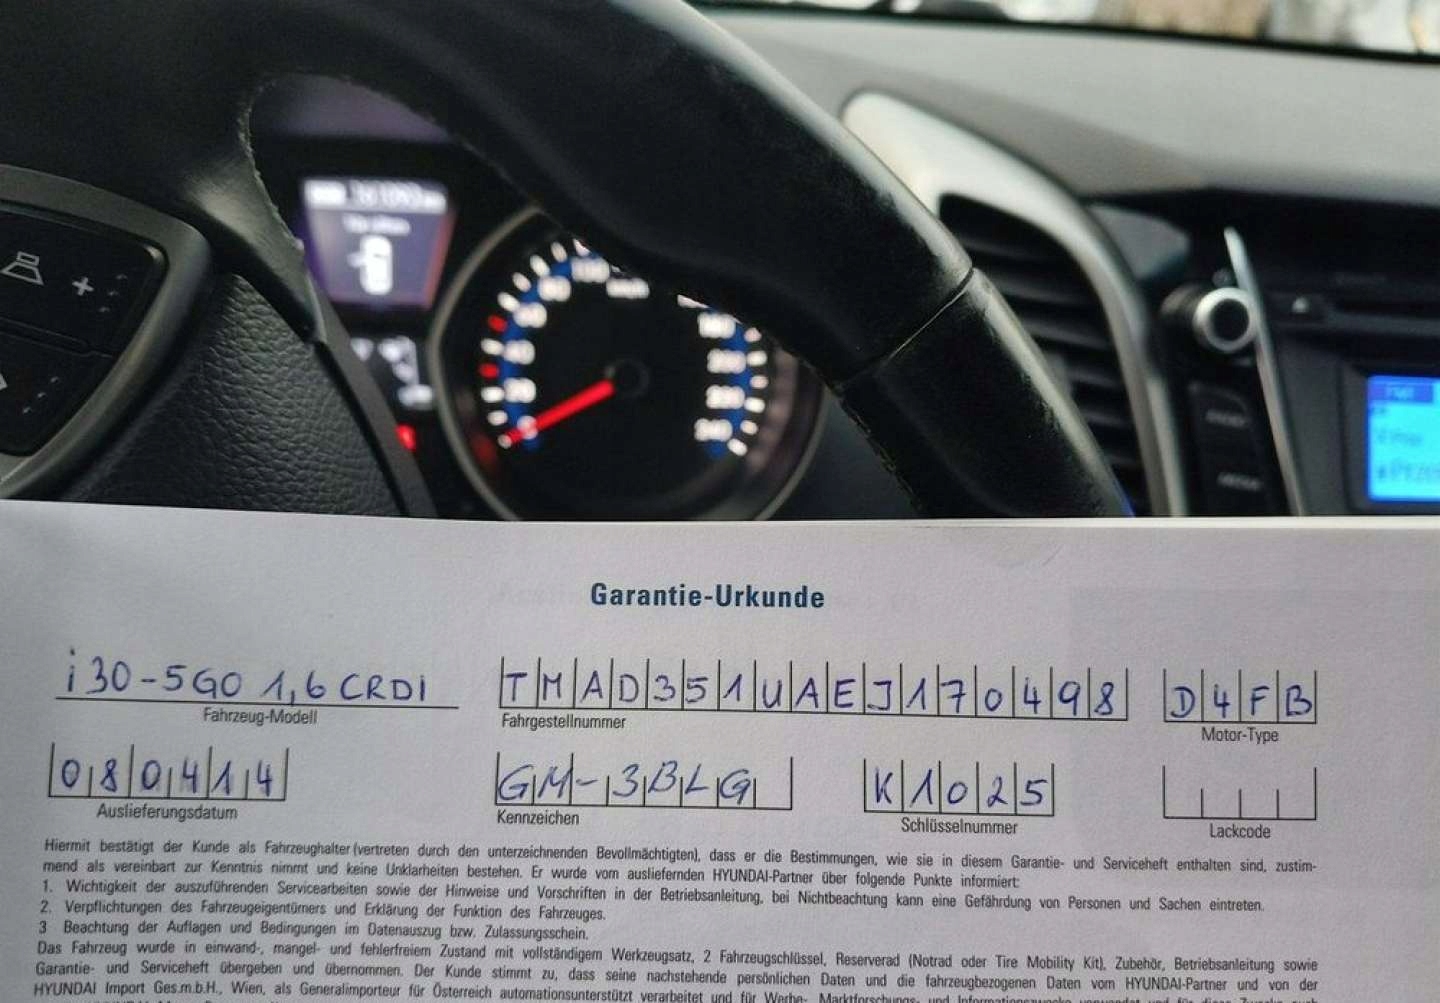 20
40
80
100
180
200
220
240
Garantie-Urkunde
i30-5GO 1,6 CRDI
TMAD351UAEJ170498
D4FB
Fahrzeug-Modell
Fahrgestellnummer
Motor-Type
080414
GM-3BLG
K1025
Auslieferungsdatum
Kennzeichen
Schlüsselnummer
Lackcode
Hiermit bestätigt der Kunde als Fahrzeughalter (vertreten durch den unterzeichnenden Bevollmächtigten), dass er die Bestimmungen, wie sie in diesem Garantie- und Serviceheft enthalten sind, zustim-
mend als vereinbart zur Kenntnis nimmt und keine Unklarheiten bestehen. Er wurde vom ausliefernden HYUNDAI-Partner über folgende Punkte informiert:
1. Wichtigkeit der auszuführenden Servicearbeiten sowie der Hinweise und Vorschriften in der Betriebsanleitung, bei Nichtbeachtung kann eine Gefährdung von Personen und Sachen eintreten.
2. Verpflichtungen des Fahrzeugeigentümers und Erklärung der Funktion des Fahrzeuges.
3 Beachtung der Auflagen und Bedingungen im Datenauszug bzw. Zulassungsschein.
Das Fahrzeug wurde in einwand-, mangel- und fehlerfreiem Zustand mit vollständigem Werkzeugsatz, 2 Fahrzeugschlüssel, Reserverad (Notrad oder Tire Mobility Kit), Zubehör, Betriebsanleitung sowie
Garantie- und Serviceheft übergeben und übernommen. Der Kunde stimmt zu, dass seine nachstehende persönlichen Daten und die fahrzeugbezogenen Daten vom HYUNDAI-Partner und von der
HYUNDAI Import Ges.m.b.H., Wien, als Generalimporteur für Österreich automationsunterstützt verarbeitet und für Werbe-, Marktforschungs- und Informationszwecke verwendet und für diese Zwecke auch